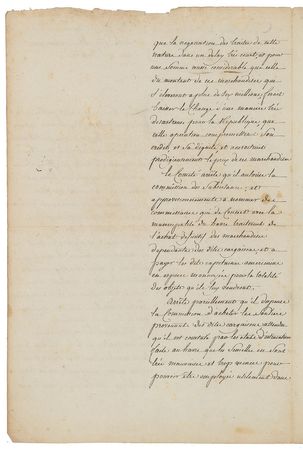 que la négociation des traites de cette
nature dans un délai très court, et pour
une somme aussi considérable que celle
du montant de ces marchandises qui
s'élèveront à plus de six millions feroit
baisser le change d'une manière très
désastreuse pour la République, que
cette opération compromettroit son
crédit, et sa dignité et accroitroit
prodigieusement le prix de ces marchandises
Le Comité arrête qu'il autorise la
commission des Subsistances et
approvisionnements à nommer des
commissaires qui de Concert avec la
municipalité du havre traiteront de
l'achat définitif des marchandises
dépendantes des dites cargaisons et à
payer les dits capitaines américains
en espèces monnayées pour la totalité
des objets qu'ils leur vendront.
Arrête pareillement qu'il dispense
la Commission d'acheter les Souliers
provenant des dites cargaisons attendu
qu'il est constaté par les états d'estimation
faits au havre que les Semelles en sont
très mauvaises et trop minces pour
pouvoir être employées utilement dans